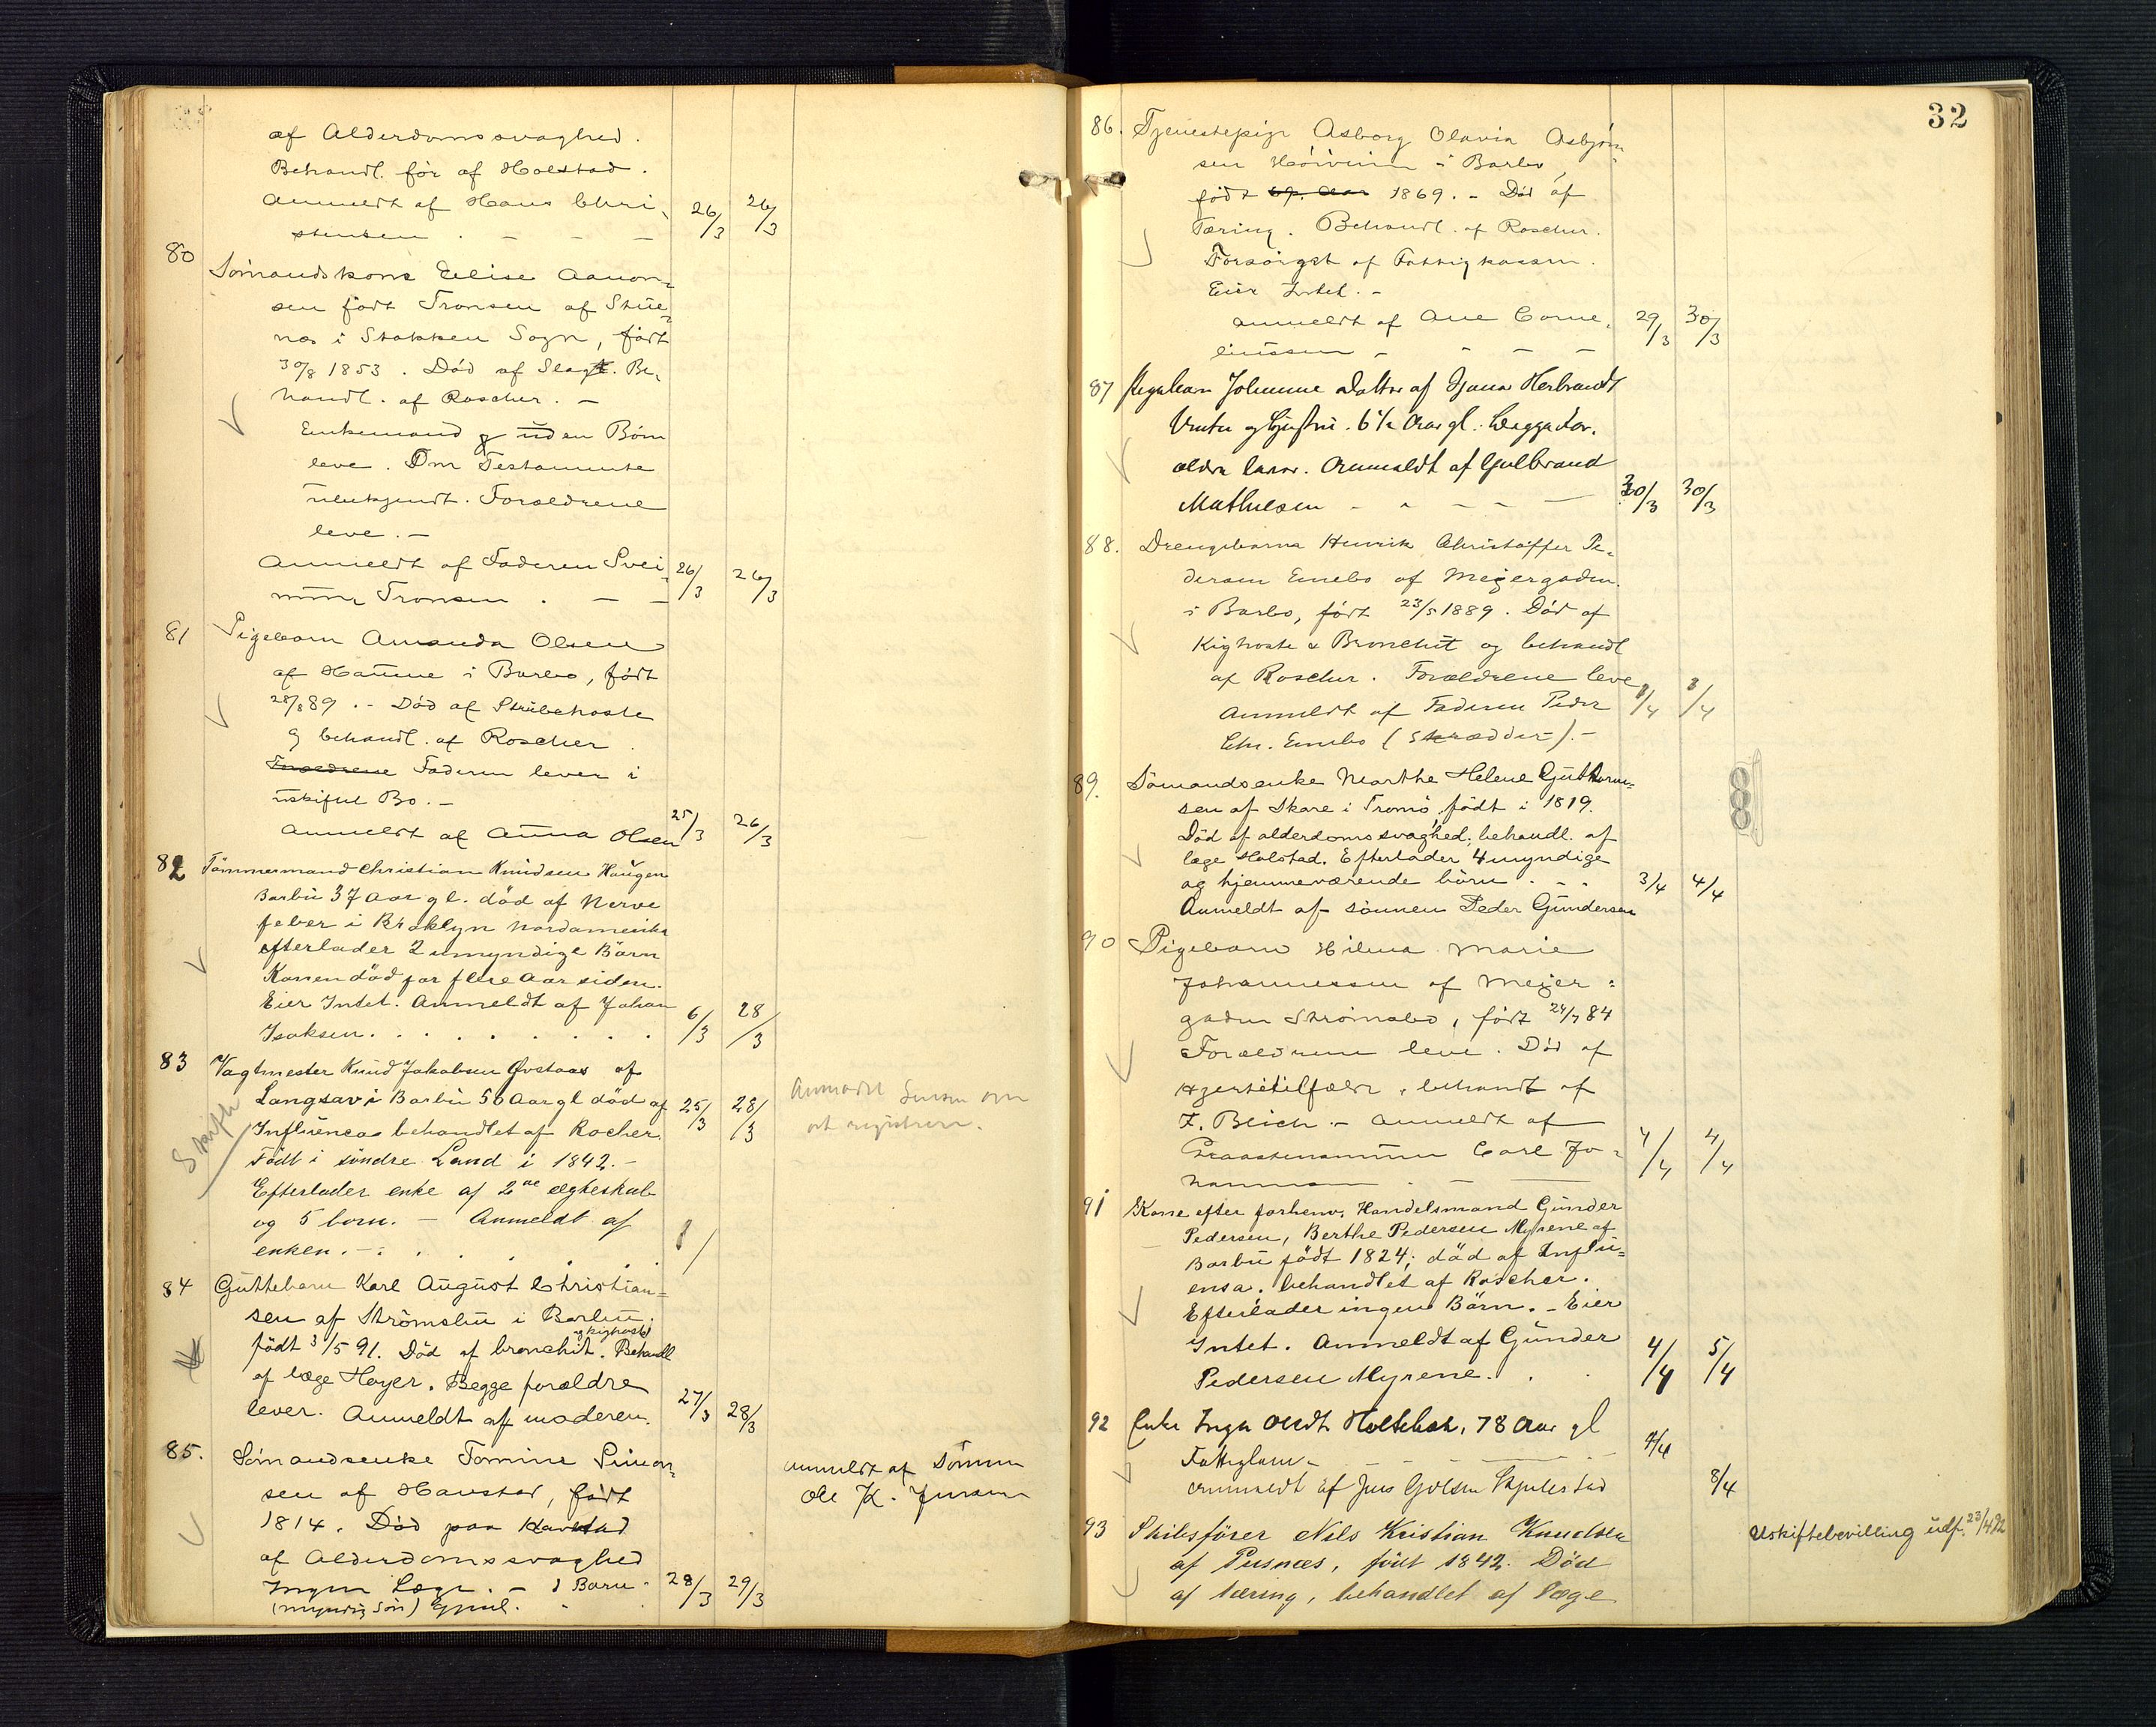 af Alderdomssvaghed.
Behandl. før af Holstad.
Anmeldt af Hans Chri-
stensen . — — — 26/3 26/3
80 Sømandskone Elise Aanon-
sen født Tronsen af Stue-
næs i Stokken Sogn, født
30/8 1853. Død af Slag. Be-
handl. af Roscher. —
Enkemand og uden Børn
leve. Om Testamente
ubekjendt. Forældrene
leve. —
Anmeldt af Faderen Svei-
nung Tronsen . — — 26/3 26/3
81 Pigebarn Amanda Olsen
af Havne i Barbo, født
28/8 89. - Død af Strubehoste
og behandl. af Roscher.
Forældrene Faderen lever i
uskiftet Bo. —
Anmeldt af Anna Olsen 25/3 26/3
82 Tømmermand Christian Knudsen Haugen
Barbu 37 Aar gl. död af Nerve
feber i Bröklyn Nordamerika
efterlader 2 umyndige Börn
Konen död for flere Aar siden.
Eier Intet. Anmeldt af Johan
Isaksen. . . . . . . . 6/3 28/3
83 Vagtmester Knud Jakobsen Øvstaas af
Langsæv i Barbu 50 Aar gl död af 25/3 28/3
Influenca behandlet af Rocher.
Född i söndre Land i 1842. —
Efterlader enke af 2de ægteskab
og 5 born. — Anmeldt af
enken. — . . . .
Skifte
Anmodet Lensm om
at registrere.
84 Guttebarn Karl August Christian=
sen af Strömsbu i Barbu.
født 3/5 91. Död af bronchit. Behandl
og kighoste
af læge Høyer. Begge forældre
lever. Anmeldt af moderen. 27/3 28/3
85. Sömandsenke Tomine Simon-
sen af Havstad, født
1814. Død paa Havstad
af Alderdomssvaghed
Ingen Læge. — 1 Barn 28/3 29/3
(myndig Søn)
anmeldt af Sønnen
Ole K. Jensen
32
86. Tjenestepige Asborg Olavia Asbjørn-
sen i Barbo,
født 1869. - Død af
Tæring. Behandl. af Roscher.
Forsørget af Fattigkassen.
Eier Intet. -
Anmeldt af Ane Corne-
liussen - - - - 29/3 30/3
87 Pigebarn Johanne Datter af
6 1/2 Aar gl. Begge For-
ældre lever. Anmeldt af Gulbrand
Mathiesen - - - - 30/3 30/3
88. Drengebarn Henrik Christoffer Pe-
dersen Enebo af Meijergaden
i Barbo, født 23/5 1889. Død af
Kighoste & Bronchit og behandl
af Roscher. Forældrene leve
Anmeldt af Faderen Peder
Chr. Enebo (Skrædder). -
89. Sömandsenke Marthe Helene Guttorm=
sen af Skare i Tromö, födt i 1819.
Död af alderdomssvaghed, behandl. af
læge Holstad. Efterlader 4 myndige
og hjemmeværende börn . - . 3/4 4/4
Anmeldt af sönnen Peder Gundersen
90 Pigebarn Hilma Marie
Johannessen af Meijer=
gaden Strømsbo, født 24/7 84
Forældrene leve. Død af
Hjertetilfælde, behandl af
F. Blich. - Anmeldt af
Carl Jo-
hannessen . - — 4/4 4/4
91 Kone efter forhenv. Handelsmand Gunder
Pedersen, Berthe Pedersen Myrene af
Barbu födt 1824; död af Influ=
ensa. behandlet af Roscher.
Efterlader ingen Börn. - Eier
Intet. Anmeldt af Gunder
Pedersen Myrene. . . 4/4 5/4
92 Enke Inger Holtebak, 78 Aar gl
Fattiglem - — — —
anmeldt af Jens 8/4
93 Skibsfører Nils Kristian Knudsen
af Pusnæs, født 1842. Død
af tæring, behandlet af Læge
Uskiftebevilling udf. 23/4 92